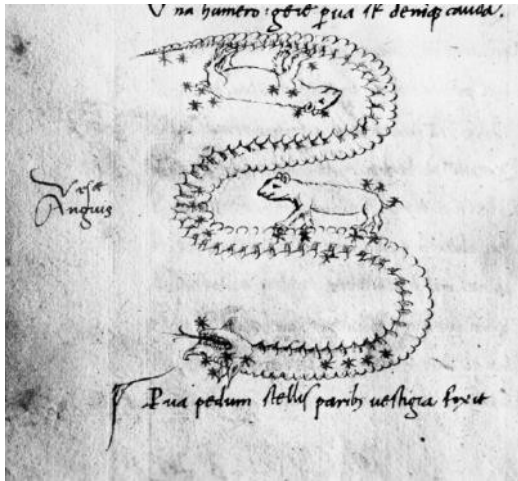 Una humero: gere pua st deniq; cauda.
Vrse
Anguis
Pua pedum stellis parib; uestigia finxit